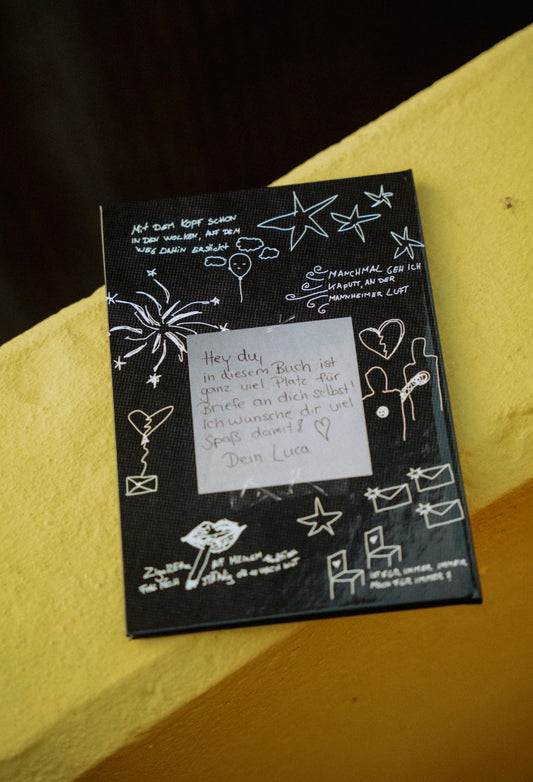 Mit dem Kopf schon
in den Wolken, auf dem
Weg dahin erstickt
Manchmal geh ich
kaputt, an der
Mannheimer Luft
Hey du,
in diesem Buch ist
ganz viel Platz für
Briefe an dich selbst!
Ich wünsche dir viel
Spaß damit! ♡
Dein Luca
ist für immer immer
noch für immer?